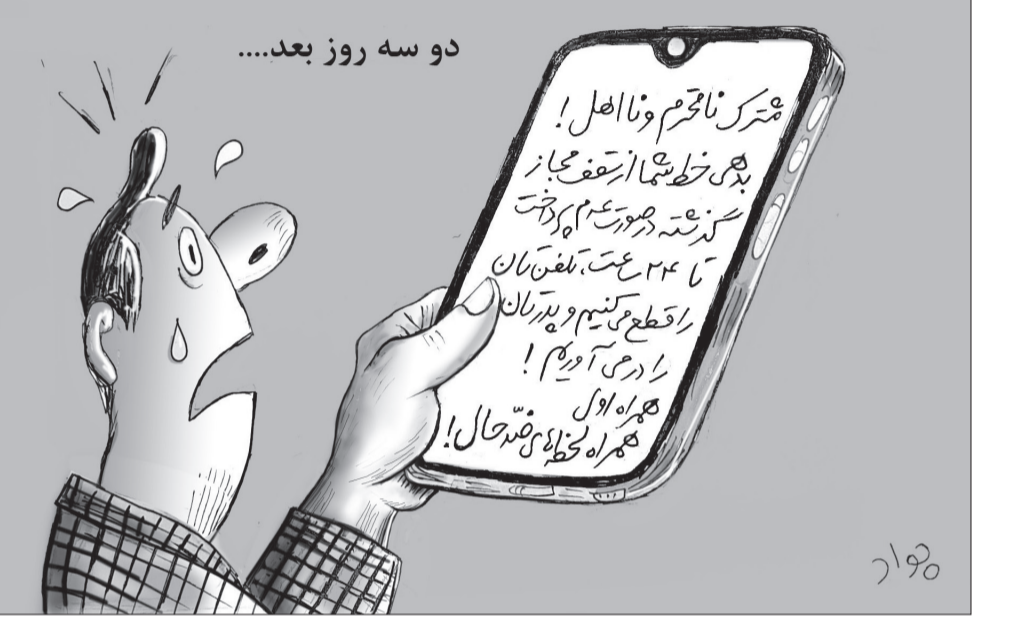 دو سه روز بعد....
مشترک نامحترم و نااهل!
بدهی خط شما از سقف مجاز
گذشته در صورت عدم پرداخت
تا ۲۴ ساعت، تلفن‌تان
را قطع می‌کنیم و پدرتان
را درمی‌آوریم!
همراه اول
همراه لحظه‌های ضدّحال!
جواد